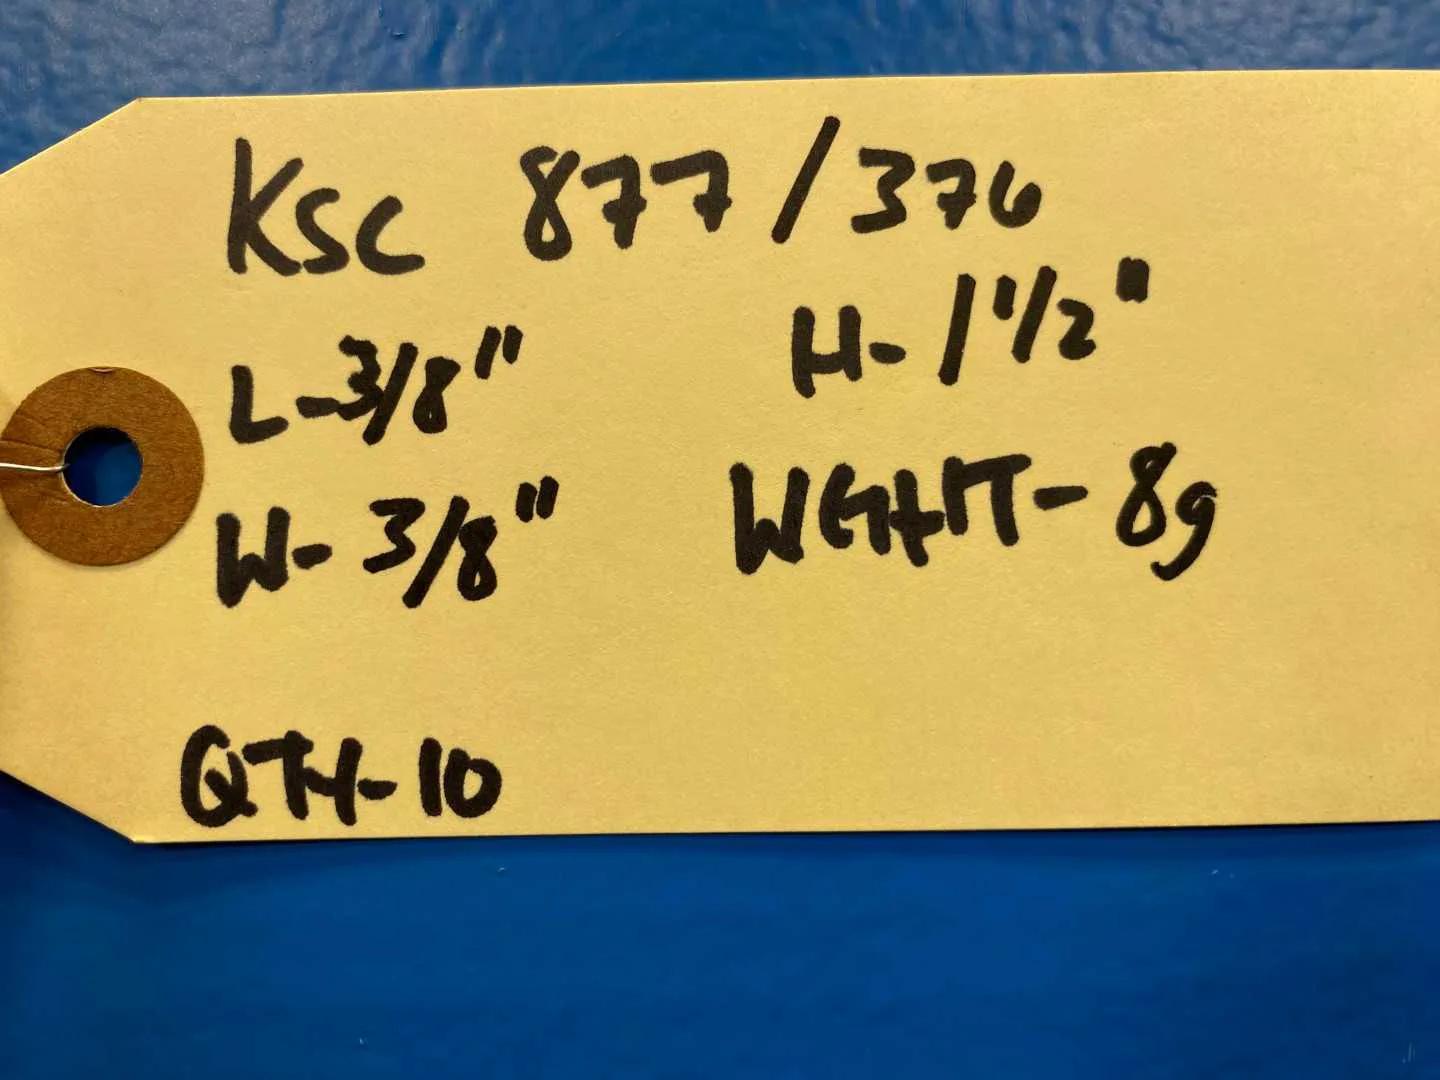 KSC 877/376
L-3/8" H-1 1/2"
W-3/8" WGHT-8g
QTY-10